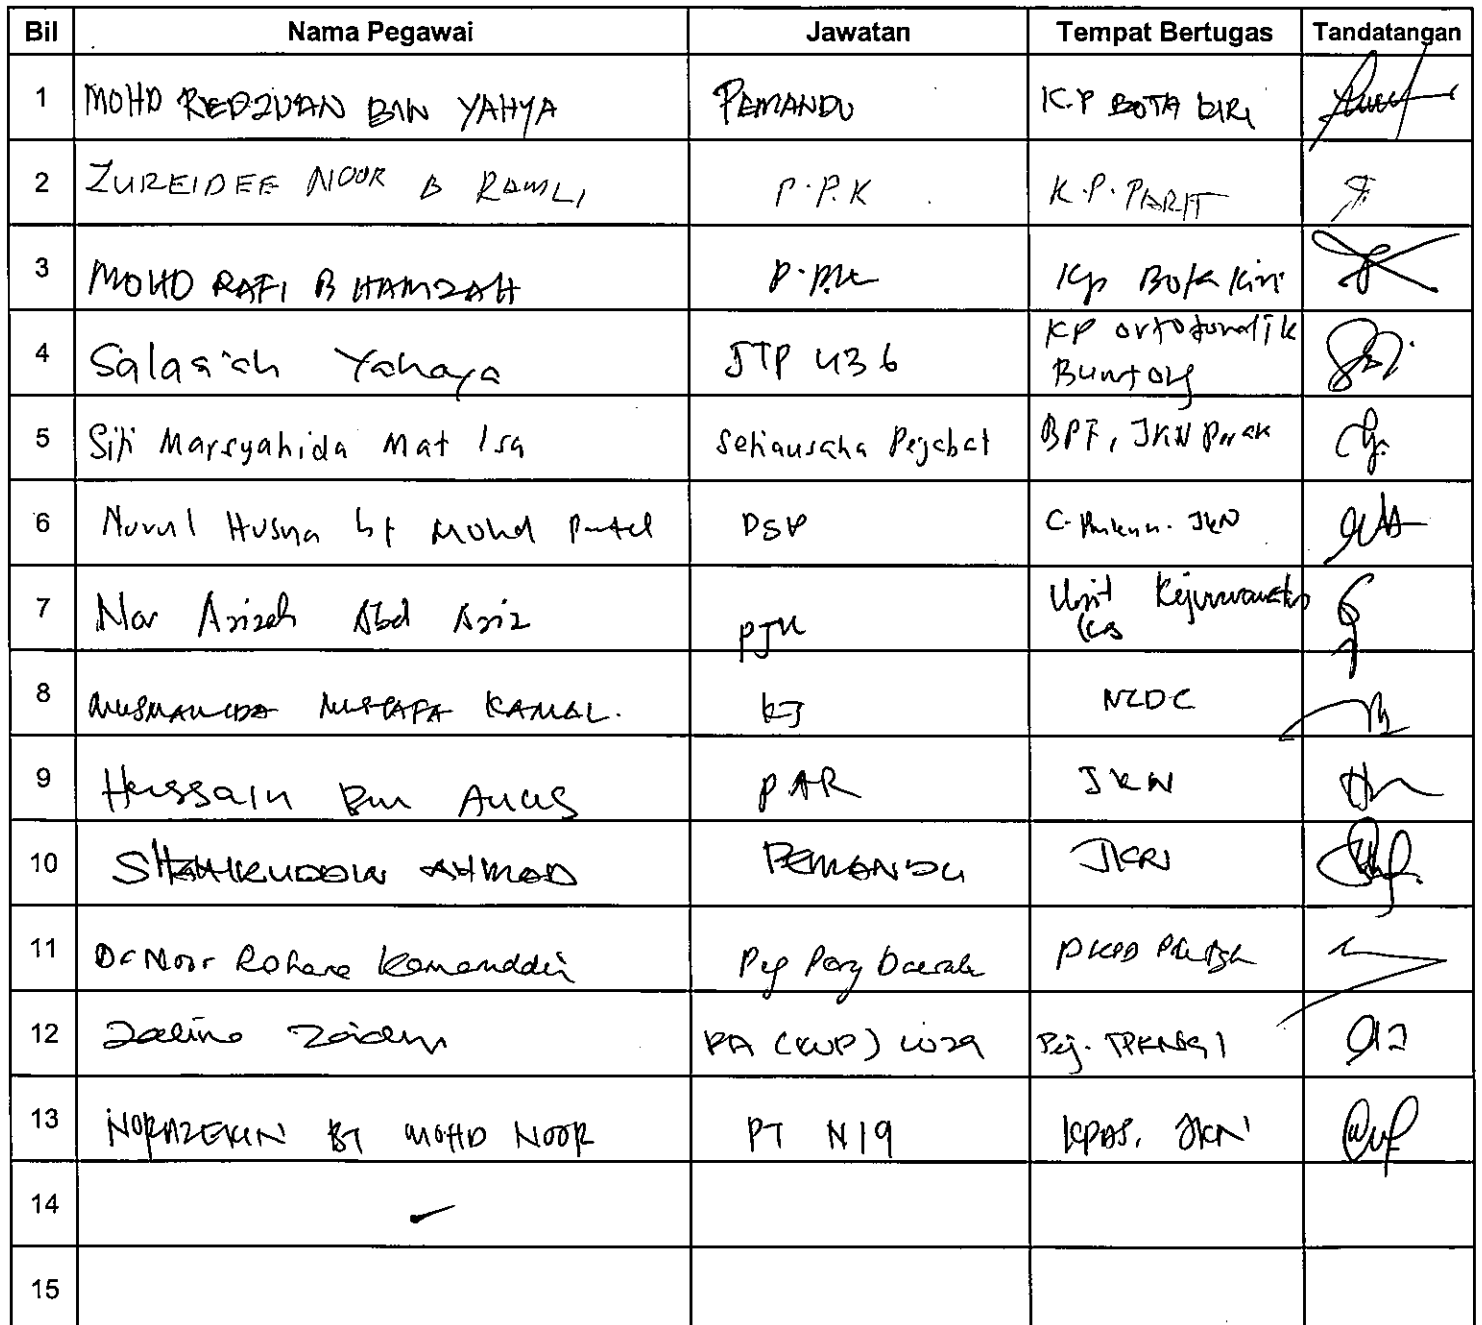 Bil Nama Pegawai Jawatan Tempat Bertugas Tandatangan
1 MOHD REDZUAN BIN YAHYA PEMANDU K.P BOTA KIRI
2 ZUREIDEE NOOR B RAMLI P.P.K K.P. PARIT
3 MOHD RAFI B HAMZAH P.PK Kp Bota Kiri
4 Salasiah Yahaya JTP U36 KP ortodontik
Buntong
5 Siti Marsyahida Mat Isa Setiausaha Pejabat BPF, JKN Perak
6 Nurul Husna bt Mohd DSP JKN
7 Nor Azizah Abd Aziz PJK Unit Kejururawatan
8 MUSTAFA KAMAL. KJ
9 Hussain Bin PAR JKN
10 AHMAD PEMANDU JKN
11 Dr Noor Rohana Kamaruddin Peg Perg Daerah PKPD
12 PA (KUP) Pej.
13 BT MOHD NOOR PT N19 JKN
14
15